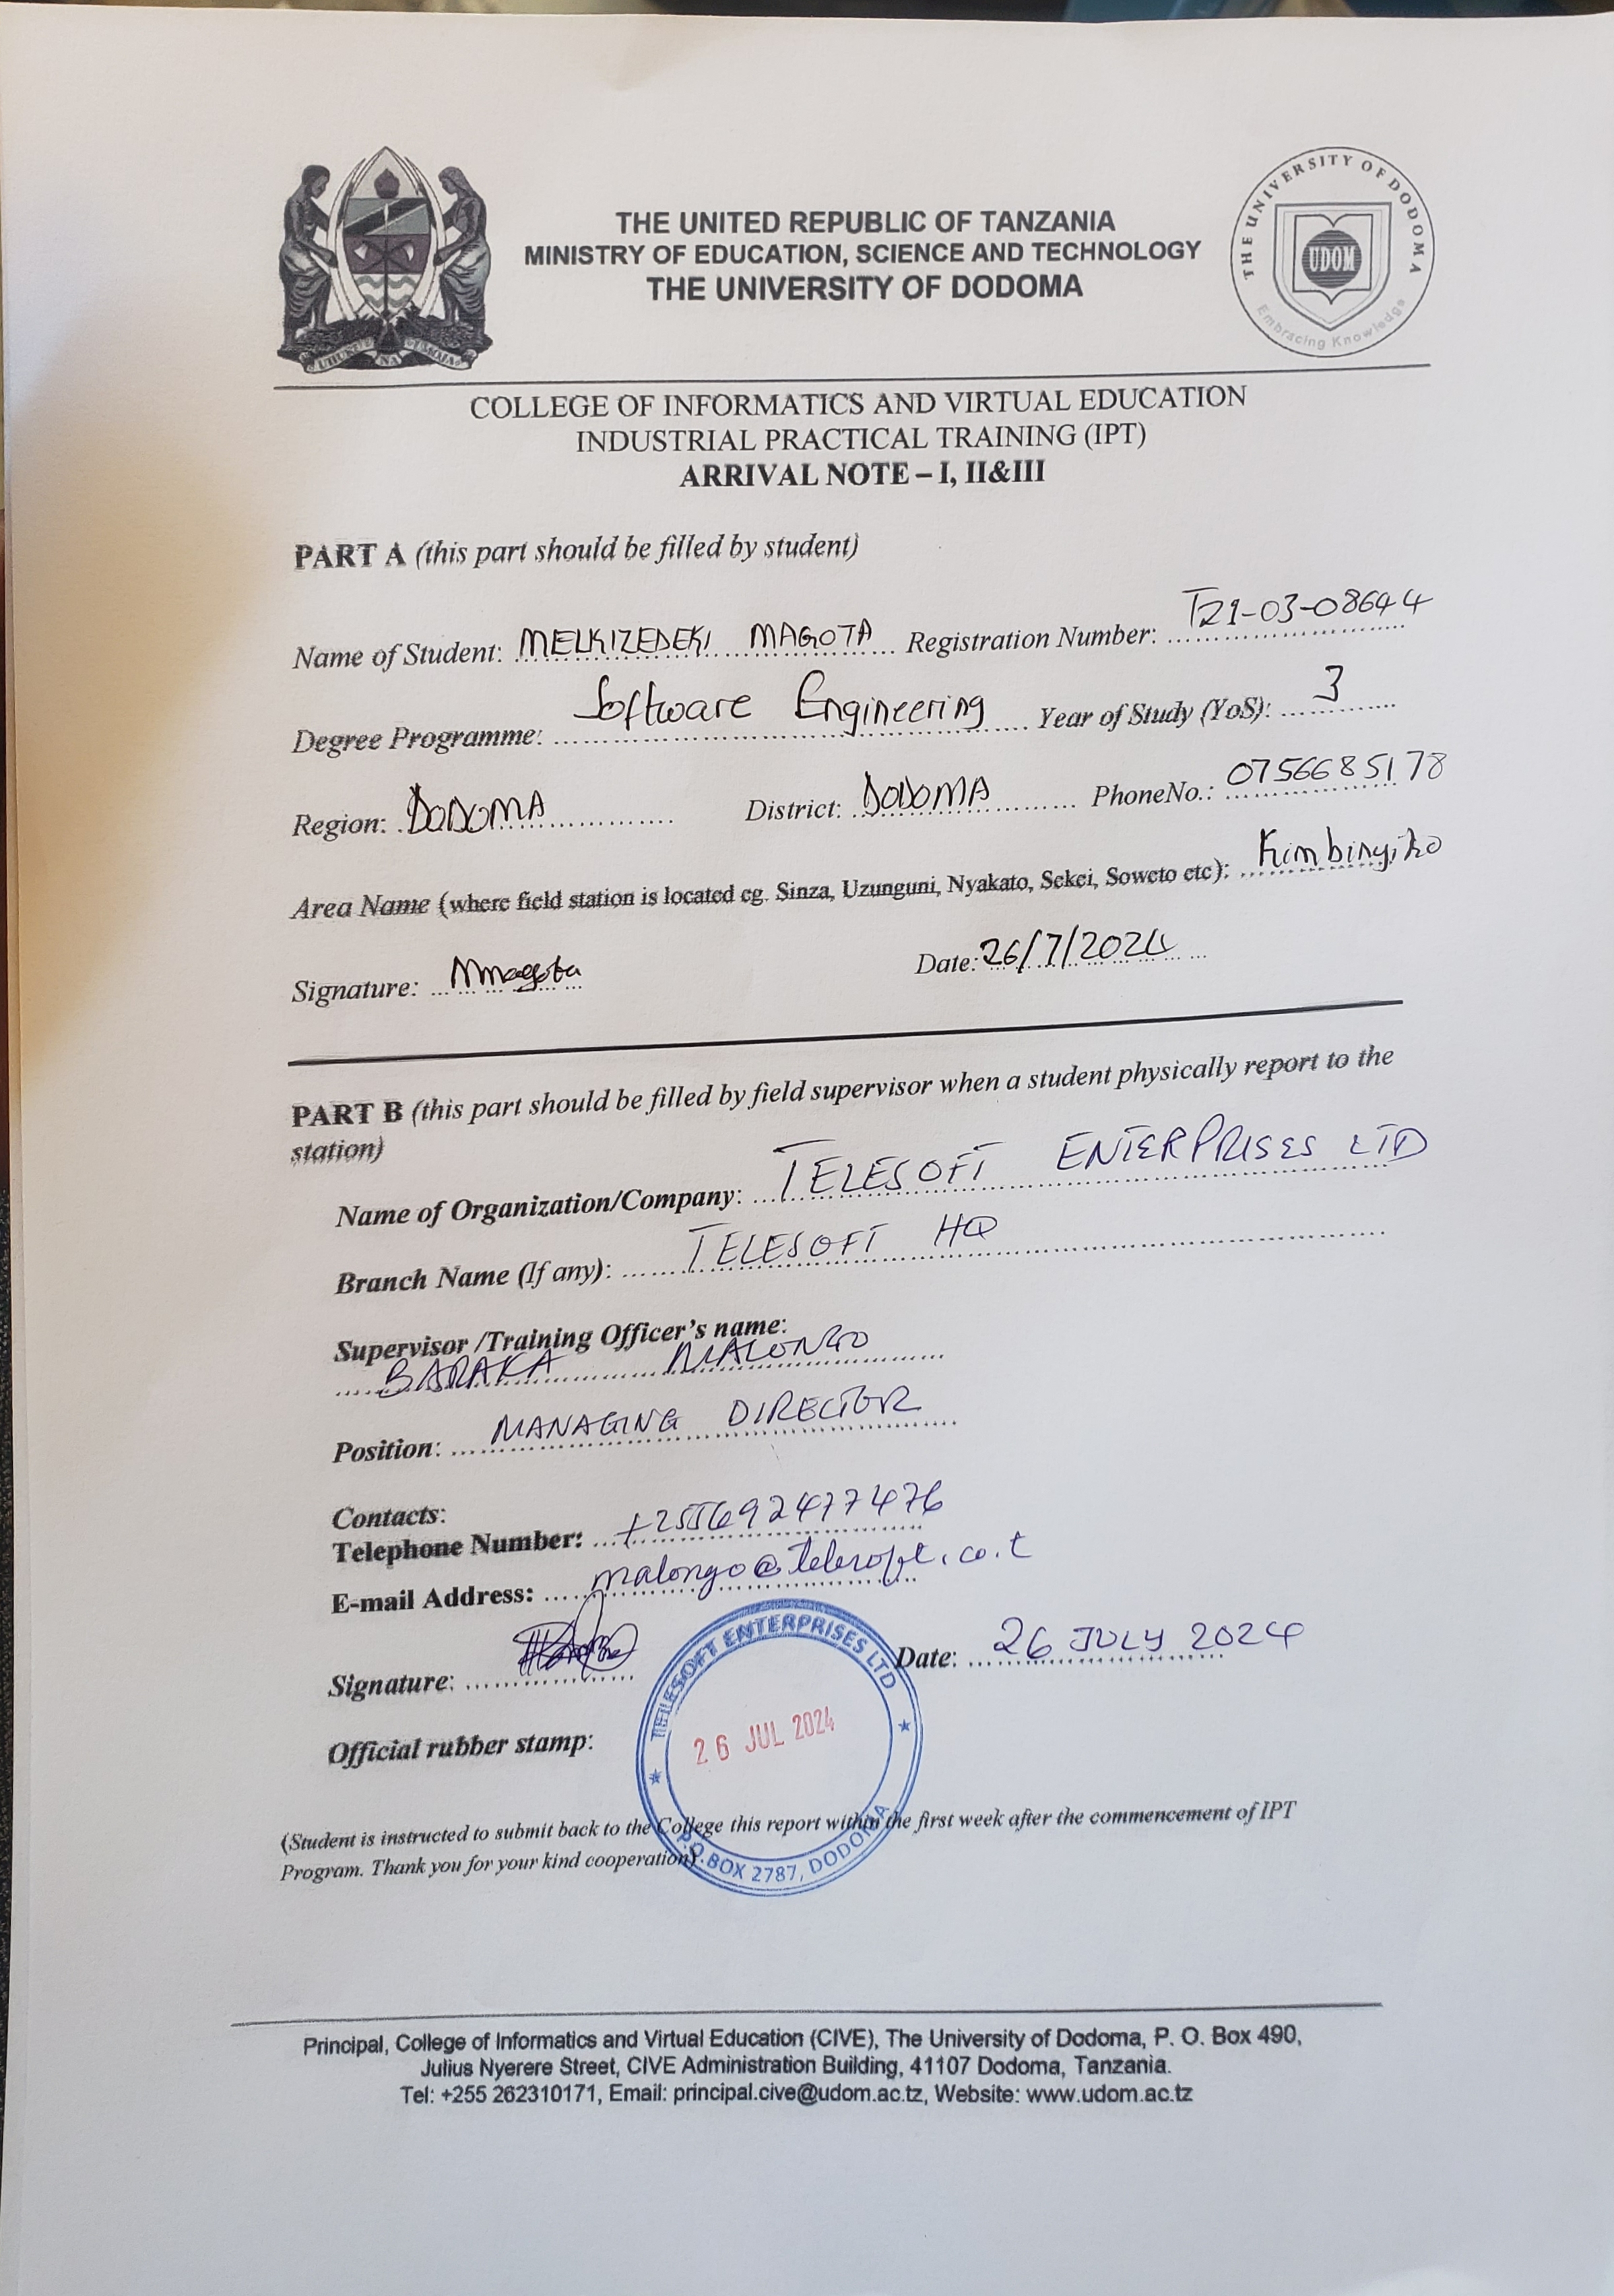 THE UNITED REPUBLIC OF TANZANIA
MINISTRY OF EDUCATION, SCIENCE AND TECHNOLOGY
THE UNIVERSITY OF DODOMA
UHURU NA UMOJA
THE UNIVERSITY OF DODOMA
UDOM
Embracing Knowledge
COLLEGE OF INFORMATICS AND VIRTUAL EDUCATION
INDUSTRIAL PRACTICAL TRAINING (IPT)
ARRIVAL NOTE – I, II&III
PART A (this part should be filled by student)
Name of Student: MELKIZEDEKI MAGOTA Registration Number: T21-03-08644
Degree Programme: Software Engineering Year of Study (YoS): 3
Region: DODOMA District: DODOMA PhoneNo.: 0756685178
Area Name (where field station is located eg. Sinza, Uzunguni, Nyakato, Sekei, Soweto etc): Kimbinyiko
Signature: Mmagota Date: 26/7/2024
PART B (this part should be filled by field supervisor when a student physically report to the
station)
Name of Organization/Company: TELESOFT ENTERPRISES LTD
Branch Name (If any): TELESOFT HQ
Supervisor /Training Officer's name:
BARAKA MALONGO
Position: MANAGING DIRECTOR
Contacts:
Telephone Number: +255692477476
E-mail Address: malongo@telesoft.co.t
Signature: Date: 26 JULY 2024
Official rubber stamp:
TELESOFT ENTERPRISES LTD
26 JUL 2024
P.O.BOX 2787, DODOMA
(Student is instructed to submit back to the College this report within the first week after the commencement of IPT
Program. Thank you for your kind cooperation).
Principal, College of Informatics and Virtual Education (CIVE), The University of Dodoma, P. O. Box 490,
Julius Nyerere Street, CIVE Administration Building, 41107 Dodoma, Tanzania.
Tel: +255 262310171, Email: principal.cive@udom.ac.tz, Website: www.udom.ac.tz